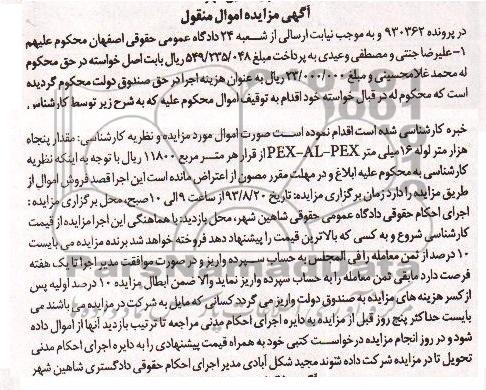 آگهی مزایده اموال منقول
در پرونده ۹۳۰۳۶۲ و به موجب نیابت ارسالی از شعبه ۲۴ دادگاه عمومی حقوقی اصفهان محکوم علیهم
۱-علیرضا جنتی و مصطفی وعیدی به پرداخت مبلغ ۵۴۹/۲۳۵/۰۴۸ ریال بابت اصل خواسته در حق محکوم
له محمد غلامحسینی و مبلغ ۲۳/۰۰۰/۰۰۰ ریال به عنوان هزینه اجرا در حق صندوق دولت محکوم گردیده
است که محکوم له در قبال خواسته خود اقدام به توقیف اموال محکوم علیه که به شرح زیر توسط کارشناس
خبره کارشناسی شده است اقدام نموده است صورت اموال مورد مزایده و نظریه کارشناسی: مقدار پنجاه
هزار متر لوله ۱۶ میلی متر PEX-AL-PEX از قرار هر متر مربع ۱۱۸۰۰ ریال با توجه به اینکه نظریه
کارشناسی به محکوم علیه ابلاغ و در مهلت مقرر مصون از اعتراض مانده است این اجرا قصد فروش اموال از
طریق مزایده را دارد زمان برگزاری مزایده: تاریخ ۹۳/۸/۲۰ از ساعت ۹ الی ۱۰ صبح، محل برگزاری مزایده:
اجرای احکام حقوقی دادگاه عمومی حقوقی شاهین شهر، محل بازدید: با هماهنگی این اجرا مزایده از قیمت
کارشناسی شروع و به کسی که بالاترین قیمت را پیشنهاد دهد فروخته خواهد شد برنده مزایده می بایست
۱۰ درصد از ثمن معامله را فی المجلس به حساب سپرده واریز و در صورت موافقت مدیر اجرا تا یک هفته
فرصت دارد مابقی ثمن معامله را به حساب سپرده واریز نماید والا ضمن ابطال مزایده ۱۰ درصد اولیه پس
از کسر هزینه های مزایده به صندوق دولت واریز می گردد کسانی که مایل به شرکت در مزایده می باشند می
بایست حداکثر پنج روز قبل از مزایده به دایره اجرای احکام مدنی مراجعه تا ترتیب بازدید آنها از اموال داده
شود و در روز انجام مزایده درخواست کتبی خود به همراه قیمت پیشنهادی را به دایره اجرای احکام مدنی
تحویل تا در مزایده شرکت داده شوند مجید شکل آبادی مدیر اجرای احکام حقوقی دادگستری شاهین شهر
ParsNamadData